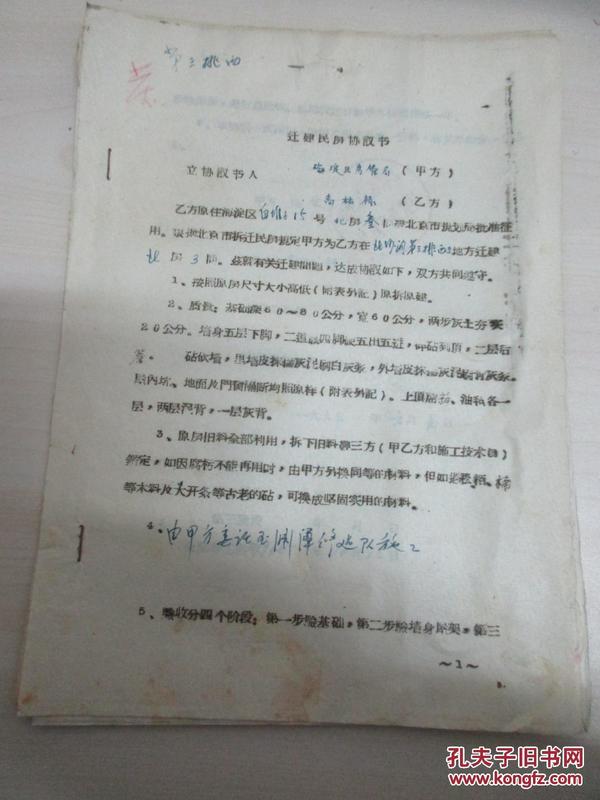 第三排西
迁建民房协议书
立协议书人 海淀区房管局（甲方）
（乙方）
乙方原住海淀区白堆子15号北房叁间经北京市规划局批准征
用。根据北京市拆迁民房规定甲方为乙方在 第三排西 地方迁建
北房3间。兹就有关迁建問題，达成协议如下，双方共同遵守。
1、按照原房尺寸大小高低（附表外記）原拆原建。
2、质量：基础深60～80公分，宽60公分，两步灰土夯实
20公分。墙身五层下脚，二道 四脚 五出五进，碎砖到顶，二层后
砖砍墙，里墙皮抹 灰 刷白灰浆，外墙皮抹 灰 青灰浆。
层內坑、地面及門窗隔断均照原样（附表外記）。上頂 、油毡各一
层，两层泥背，一层灰背。
3、原房旧料全部利用，拆下旧料 三方（甲乙方和施工技术 ）
鉴定，如因腐朽不能再用时，由甲方另换同等的材料，但如 松、柏、楠
等木料及大开条等古老的砖，可换成坚固实用的材料。
4、由甲方委託玉渊潭修建队施工
5、驗收分四个阶段：第一步驗基础，第二步驗墙身房架，第三
～1～
孔夫子旧书网
www.kongfz.com